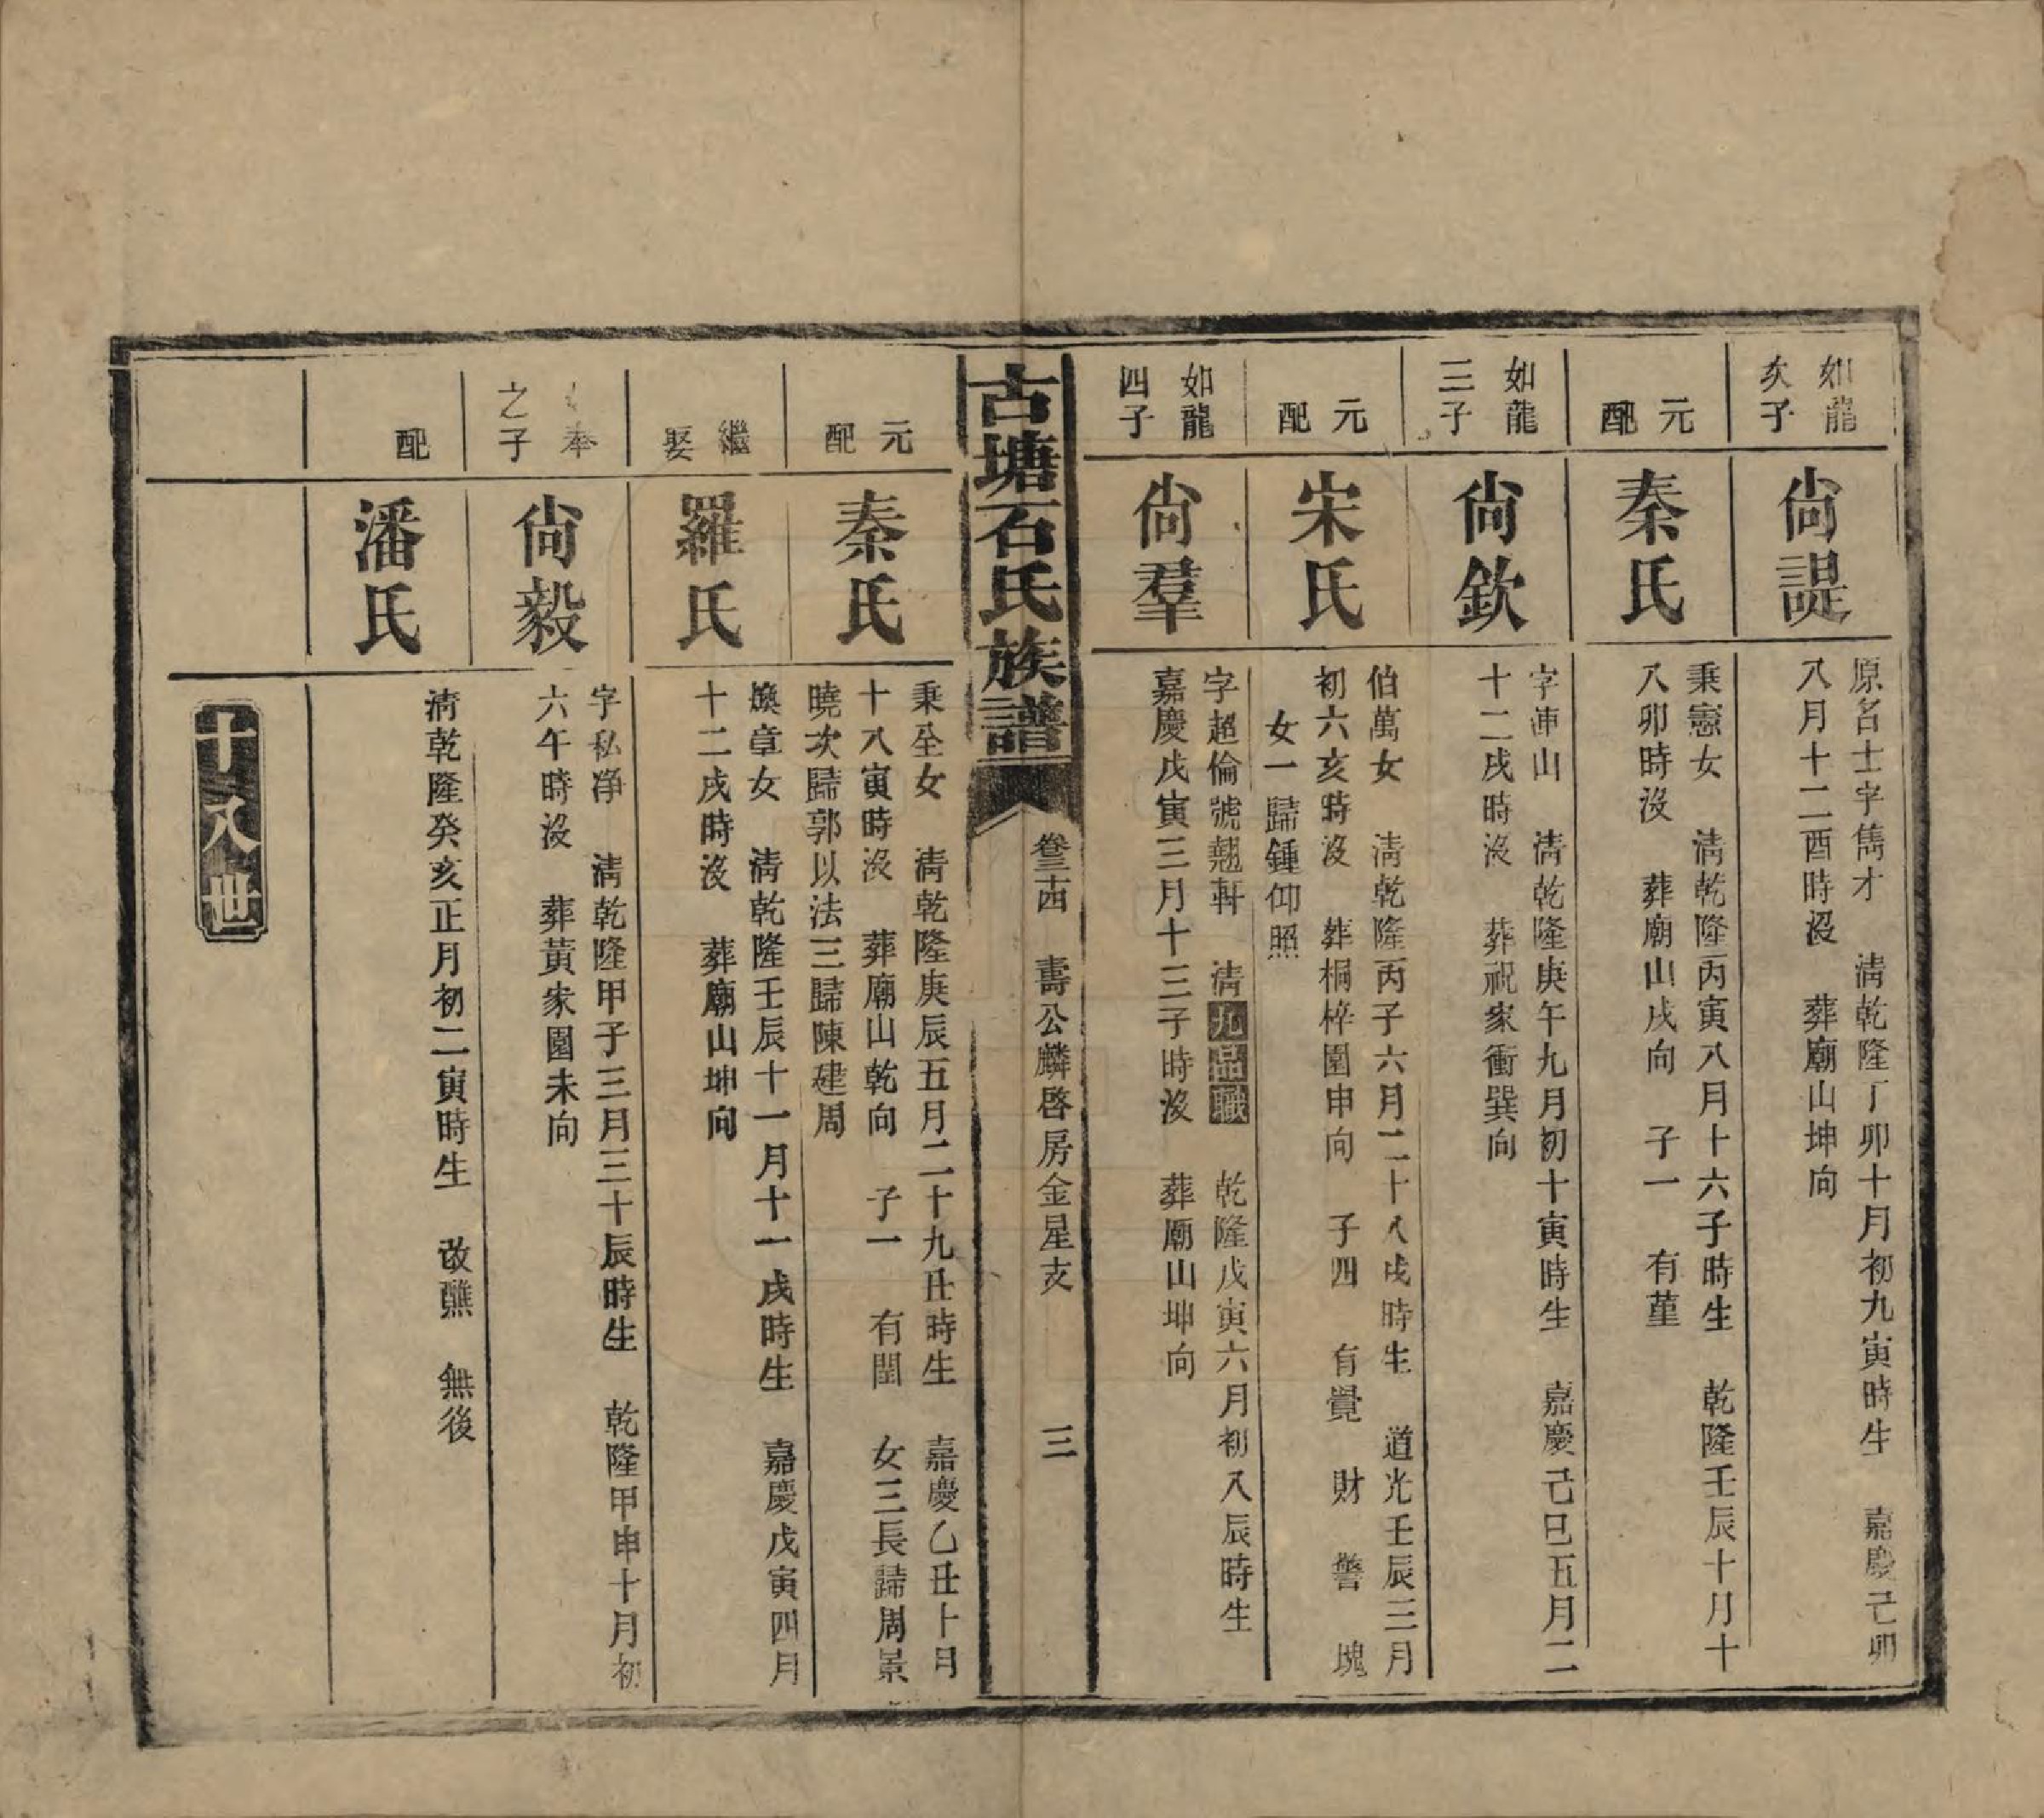 如龍
次子
尙諟
原名士字雋才　淸乾隆丁卯十月初九寅時生　嘉慶己卯
八月十二酉時沒　葬廟山坤向
元配
秦氏
秉憲女　淸乾隆丙寅八月十六子時生　乾隆壬辰十月十
八卯時沒　葬廟山戌向　子一　有菫
如龍
三子
尙欽
字連山　淸乾隆庚午九月初十寅時生　嘉慶己巳五月二
十二戌時沒　葬祝家衝巽向
元配
宋氏
伯萬女　淸乾隆丙子六月二十八戌時生　道光壬辰三月
初六亥時沒　葬桐梓園申向　子四　有覺　財　警　塊
女一歸鍾仰照
如龍
四子
尙羣
字超倫號翹軒　淸九品職　乾隆戊寅六月初八辰時生
嘉慶戊寅三月十三子時沒　葬廟山坤向
古塘石氏族譜
卷三十四　壽公麟啓房金星支　三
元配
秦氏
秉坙女　淸乾隆庚辰五月二十九丑時生　嘉慶乙丑十月
十八寅時沒　葬廟山乾向　子一　有閏　女三長歸周景
曉次歸郭以法三歸陳建周
繼娶
羅氏
煥章女　淸乾隆壬辰十一月十一戌時生　嘉慶戊寅四月
十二戌時沒　葬廟山坤向
奉
之子
尙毅
字私淨　淸乾隆甲子三月三十辰時生　乾隆甲申十月初
六午時沒　葬黃家園未向
配
潘氏
淸乾隆癸亥正月初二寅時生　改醮　無後
十八世